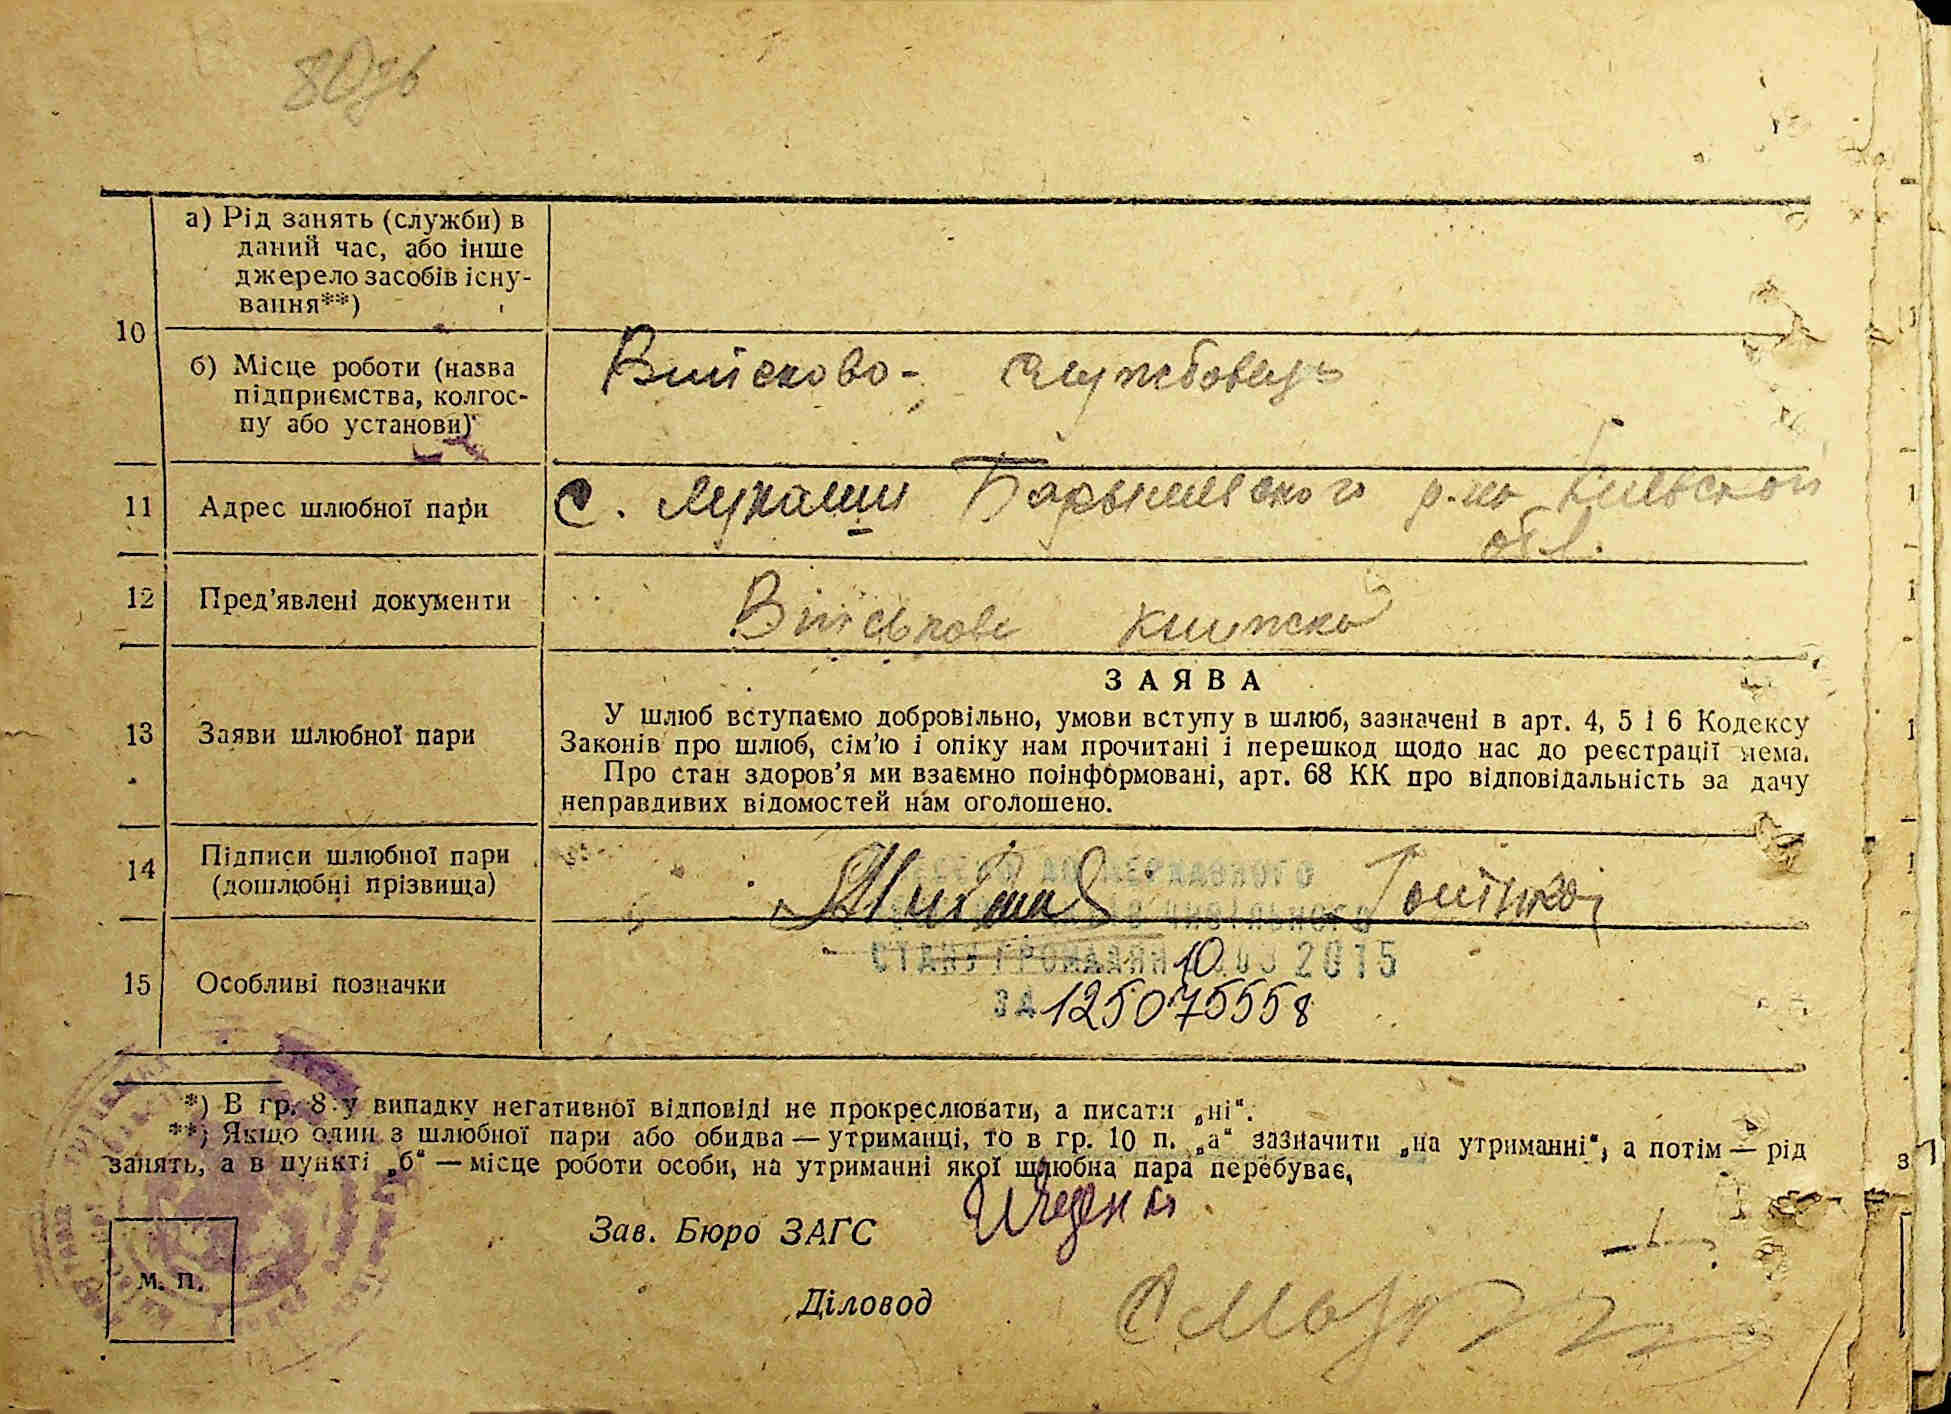 а) Рід занять (служби) в
даний час, або інше
джерело засобів існу-
вання**)
10
б) Місце роботи (назва
підприємства, колгос-
пу або установи)
Військово- службовець
11 Адрес шлюбної пари
с. Лукаши Барышевского р-на Киевской
обл.
12 Пред’явлені документи
Військова книжка
ЗАЯВА
13 Заяви шлюбної пари
У шлюб вступаємо добровільно, умови вступу в шлюб, зазначені в арт. 4, 5 і 6 Кодексу
Законів про шлюб, сім’ю і опіку нам прочитані і перешкод щодо нас до реєстрації нема.
Про стан здоров’я ми взаємно поінформовані, арт. 68 КК про відповідальність за дачу
неправдивих відомостей нам оголошено.
14 Підписи шлюбної пари
(дошлюбні прізвища)
ДО ДЕРЖАВНОГО
СТАНУ ГРОМАДЯН 10.03 2015
15 Особливі позначки
ЗА 125075558
*) В гр. 8 у випадку негативної відповіді не прокреслювати, а писати „ні“.
**) Якщо один з шлюбної пари або обидва — утриманці, то в гр. 10 п. „а“ зазначити „на утриманні“, а потім — рід
занять, а в пункті „б“ — місце роботи особи, на утриманні якої шлюбна пара перебуває,
Зав. Бюро ЗАГС
М. П.
Діловод